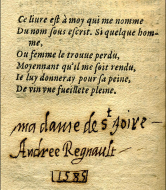 Ce liure est à moy qui me nomme
Du nom sous escrit. Si quelque hom-
me,
Ou femme le trouue perdu,
Moyennant qu'il me soit rendu,
Ie luy donneray pour sa peine,
De vin vne fueillete pleine.
madame de St Joire
Andree Regnault
1585